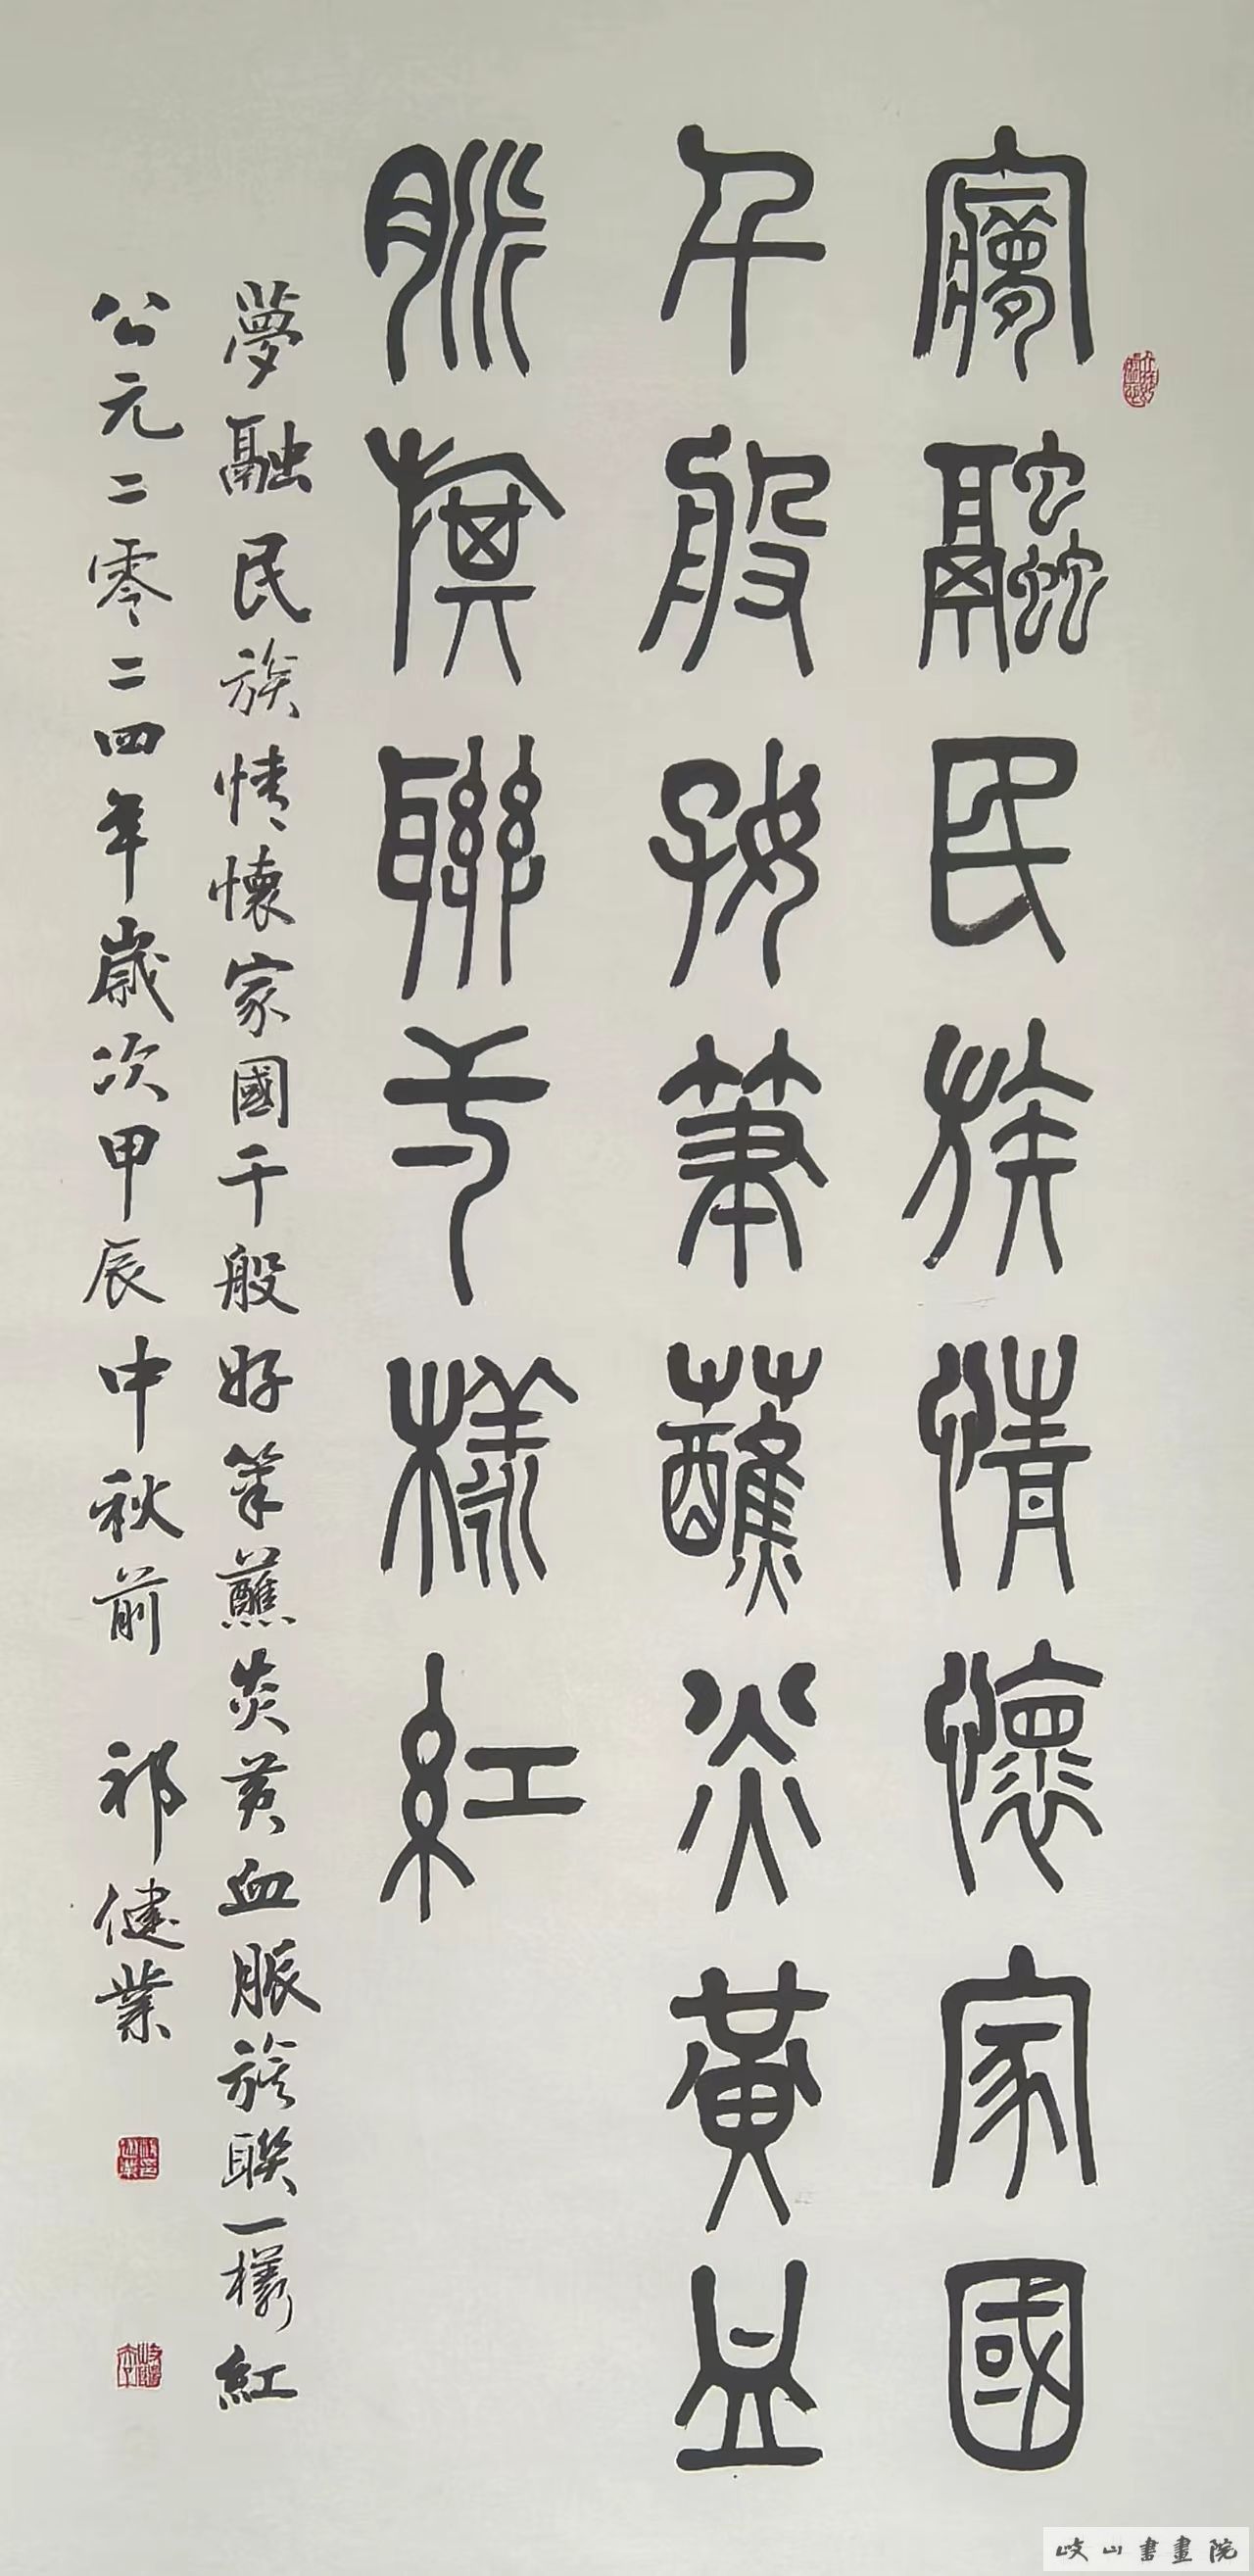 夢融民族情懷家國
千般好筆蘸炎黃血
脈族聯一樣紅
夢融民族情懷家國千般好筆蘸炎黃血脈族聯一樣紅
公元二零二四年歲次甲辰中秋前 祁健業
岐山書畫院